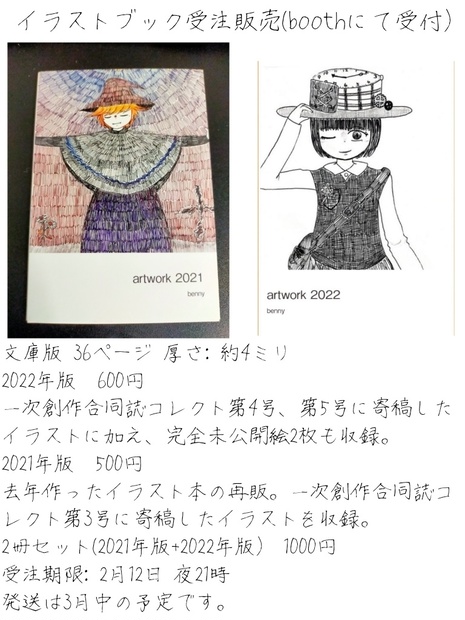 イラストブック受注販売(boothにて受付)
artwork 2021
benny
artwork 2022
benny
文庫版 36ページ 厚さ: 約4ミリ
2022年版　600円
一次創作合同誌コレクト第4号、第5号に寄稿した
イラストに加え、完全未公開絵2枚も収録。
2021年版　500円
去年作ったイラスト本の再販。一次創作合同誌コ
レクト第3号に寄稿したイラストを収録。
2冊セット(2021年版+2022年版)　1000円
受注期限: 2月12日 夜21時
発送は3月中の予定です。